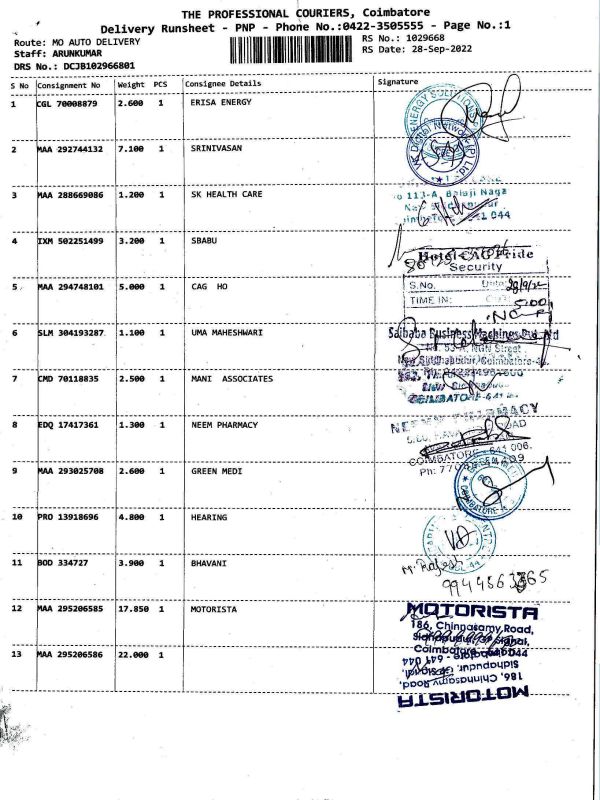 THE PROFESSIONAL COURIERS, Coimbatore
Delivery Runsheet - PNP - Phone No.:0422-3505555 - Page No.:1
Route: MO AUTO DELIVERY
RS No.: 1029668
Staff: ARUNKUMAR
RS Date: 28-Sep-2022
DRS No.: DCJB102966801
S No Consignment No Weight PCS Consignee Details Signature
1 CGL 70008879 2.600 1 ERISA ENERGY
2 MAA 292744132 7.100 1 SRINIVASAN
3 MAA 288669086 1.200 1 SK HEALTH CARE
4 IXM 502251499 3.200 1 SBABU
Hotel CAG Pride
Security
5 MAA 294748101 5.000 1 CAG HO
S.No. Date 28/9/22
TIME IN: 5:00
6 SLM 304193287 1.100 1 UMA MAHESHWARI
Saibaba Business Machines Pvt. Ltd
7 CMD 70118835 2.500 1 MANI ASSOCIATES
8 EDQ 17417361 1.300 1 NEEM PHARMACY
NEEM PHARMACY
COIMBATORE - 641 006.
9 MAA 293025708 2.600 1 GREEN MEDI
10 PRO 13918696 4.800 1 HEARING
11 BOD 334727 3.900 1 BHAVANI
M. Rajesh
12 MAA 295206585 17.850 1 MOTORISTA
MOTORISTA
186, Chinnasamy Road,
13 MAA 295206586 22.000 1
Sidhapudur,
186, Chinnasamy Road,
MOTORISTA